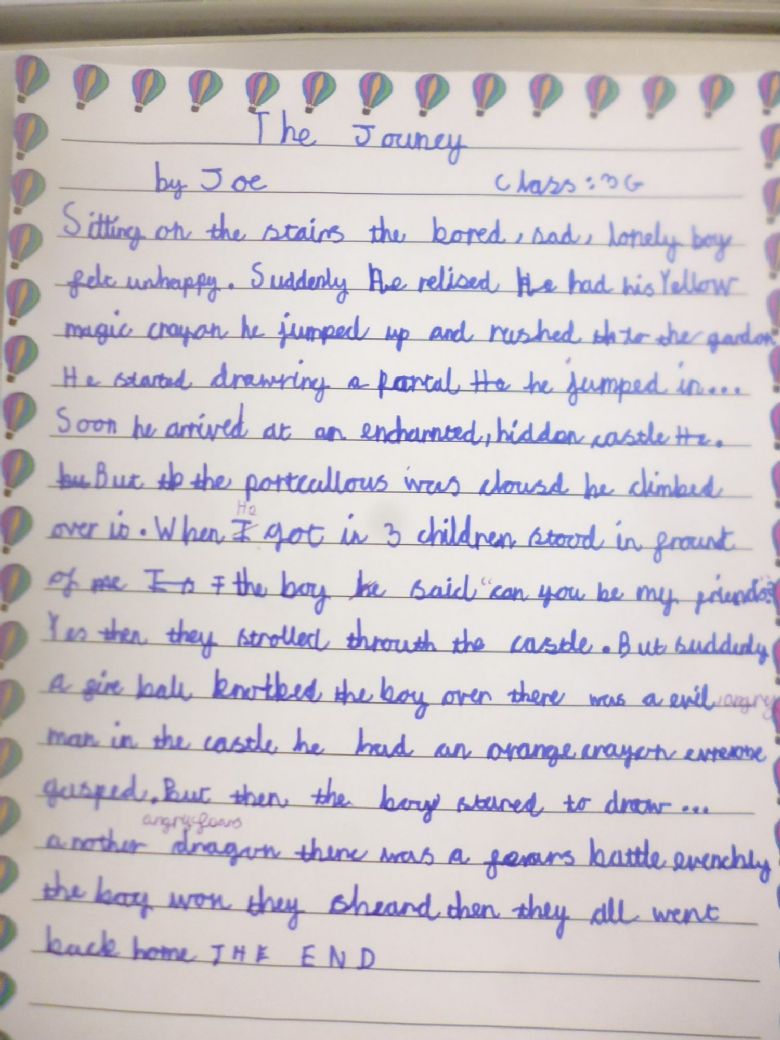 The Jouney
by Joe class: 3G
Sitting on the stairs the bored, sad, lonely boy
felt unhappy. Suddenly He relised He had his Yellow
magic crayon he jumped up and rushed to the gardon
He started drawring a Portal He he jumped in...
Soon he arrived at an encharnted, hidden castle He.
bu But th the portcallous was clousd he climbed
He
over it. When I got in 3 children stood in frount
of me I the boy he said "can you be my friends"
Yes then they strolled throuth the castle. But suddenly
a fire ball knotked the boy over there was a evil angry
man in the castle he had an orange crayon
gasped. But then the boy stared to draw...
angry fears
another dragon there was a fears battle evenchly
the boy won they sheard then they all went
back home THE END